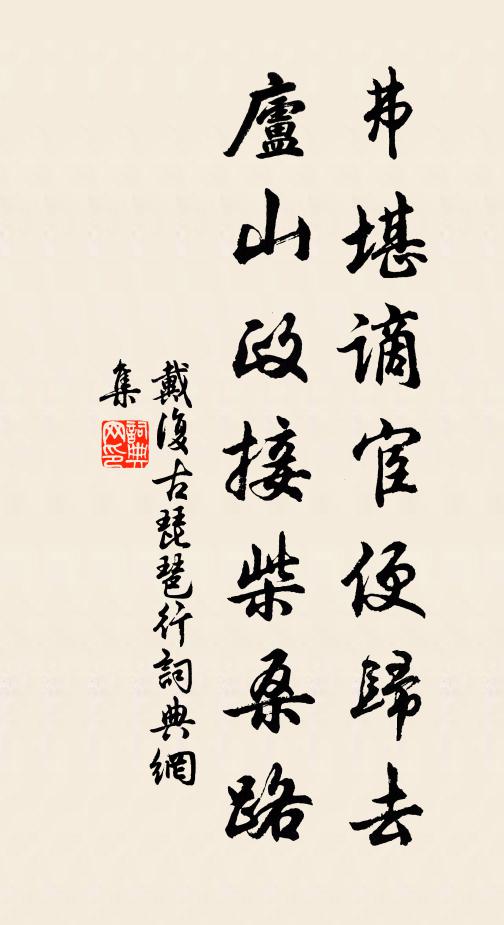 弗堪謫宦便歸去
廬山政接柴桑路
戴復古琵琶行詞典網
集
詞典
网印